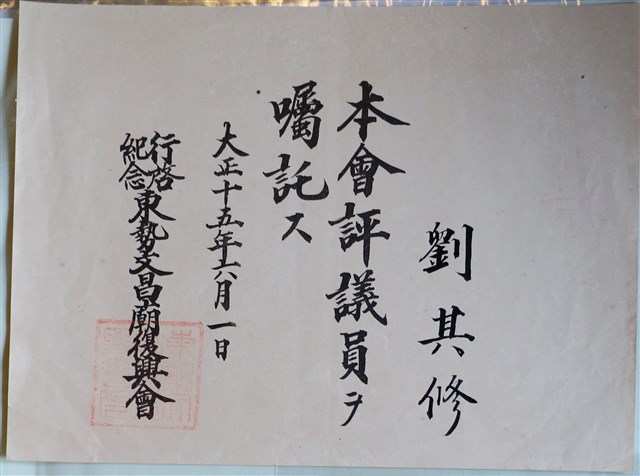 劉其修
本會評議員ヲ
囑託ス
大正十五年六月一日
行啓
紀念
東勢文昌廟復興會